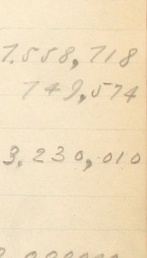 7.558,718
749,574
3,230,010